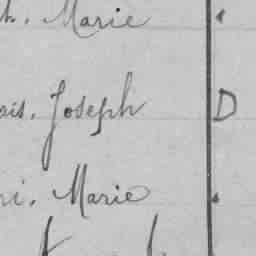 Marie
ois. Joseph D
ri. Marie